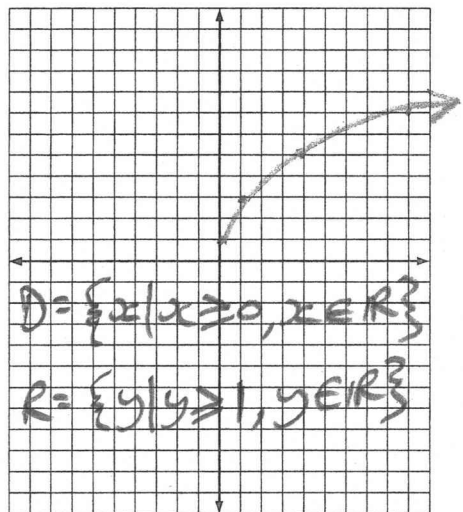 D = {x | x ≥ 0, x ∈ ℝ}
R = {y | y ≥ 1, y ∈ ℝ}